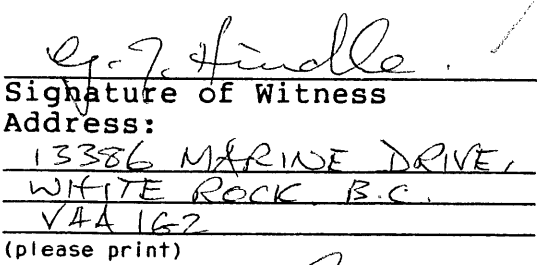 G. J. Hindle.
Signature of Witness
Address:
13386 MARINE DRIVE,
WHITE ROCK B.C.
V4A 1G2
(please print)